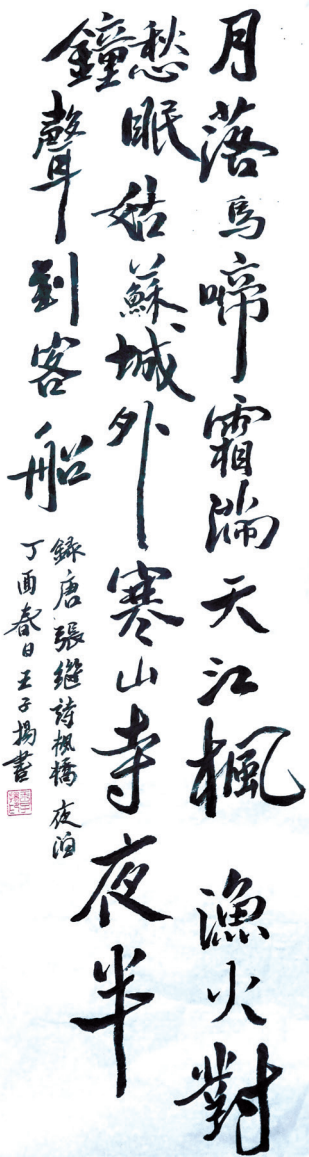 月落烏啼霜滿天江楓漁火對
愁眠姑蘇城外寒山寺夜半
鐘聲到客船
錄唐張繼詩楓橋夜泊
丁酉春日王子揚書